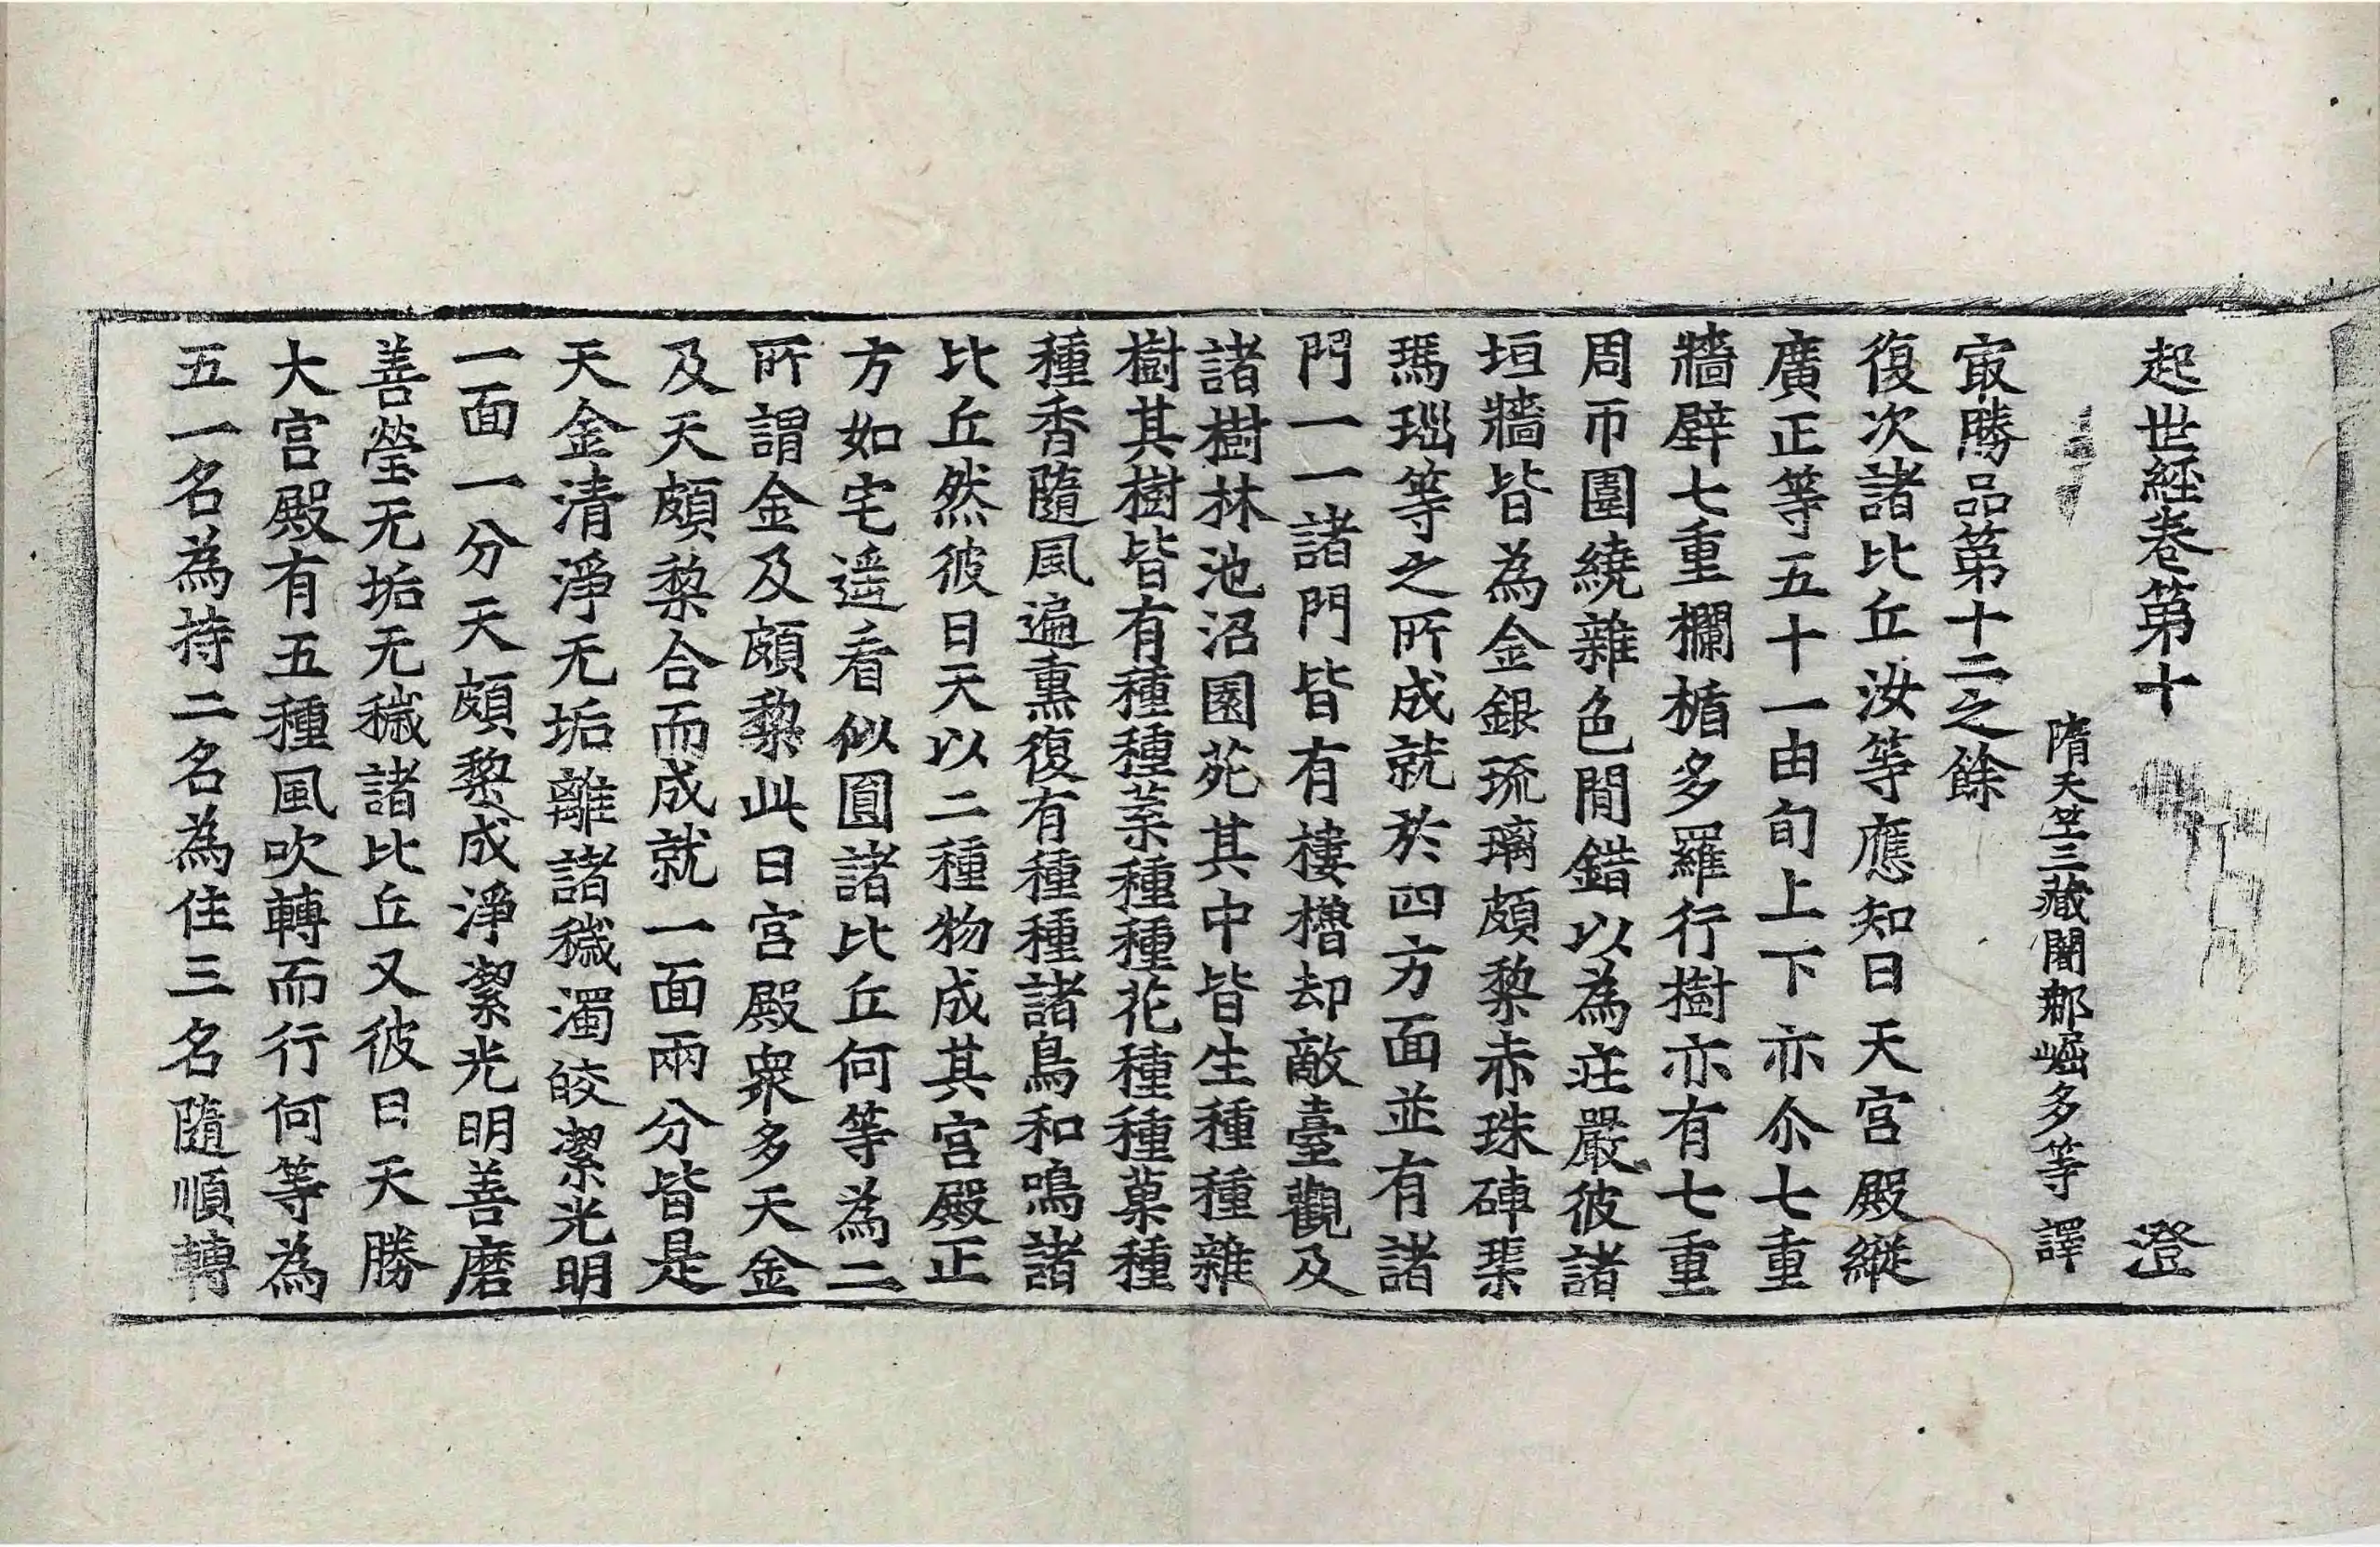 起世経卷第十 澄
隋天竺三藏闍那崛多等譯
㝡勝品第十二之餘
復次諸比丘汝等應知日天宮殿縱
廣正等五十一由旬上下亦尒七重
牆壁七重欄楯多羅行樹亦有七重
周帀圍繞雜色間錯以為莊嚴彼諸
垣牆皆為金銀琉璃頗黎赤珠硨磲
瑪瑙等之所成就於四方面並有諸
門一一諸門皆有樓櫓却敵臺觀及
諸樹林池沼園苑其中皆生種種雜
樹其樹皆有種種葉種種花種種菓種
種香隨風遍熏復有種種諸鳥和鳴諸
比丘然彼日天以二種物成其宮殿正
方如宅遥看似圓諸比丘何等為二
所謂金及頗黎此日宮殿衆多天金
及天頗黎合而成就一面兩分皆是
天金清淨无垢離諸穢濁皎潔光明
一面一分天頗黎成淨潔光明善磨
善瑩无垢无穢諸比丘又彼日天勝
大宮殿有五種風吹轉而行何等為
五一名為持二名為住三名隨順轉